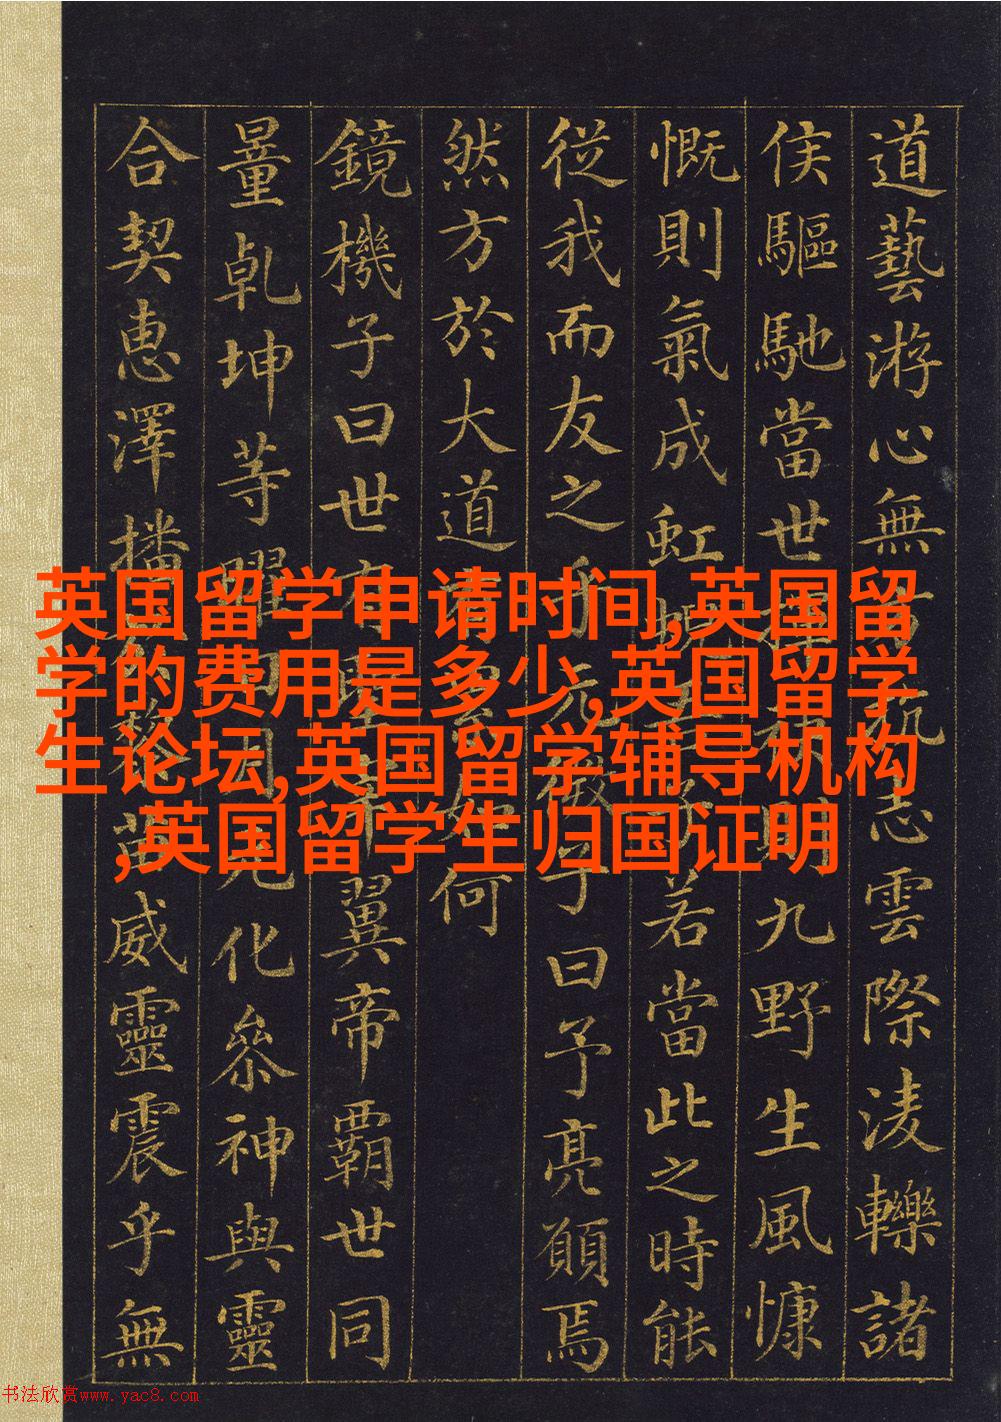 道藝游心無 志雲際淩轢諸
侯驅馳當世 九野生風慷
慨則氣成虹 若當此之時能
從我而友之乎元 子曰予亮願焉
然方於大道 如何
鏡機子曰世有 翼帝霸世同
量乾坤等曜 化參神與靈
合契惠澤播 威靈震乎無
英国留学申请时间,英国留
学的费用是多少,英国留学
生论坛,英国留学辅导机构
,英国留学生归国证明
书法欣赏www.yac8.com